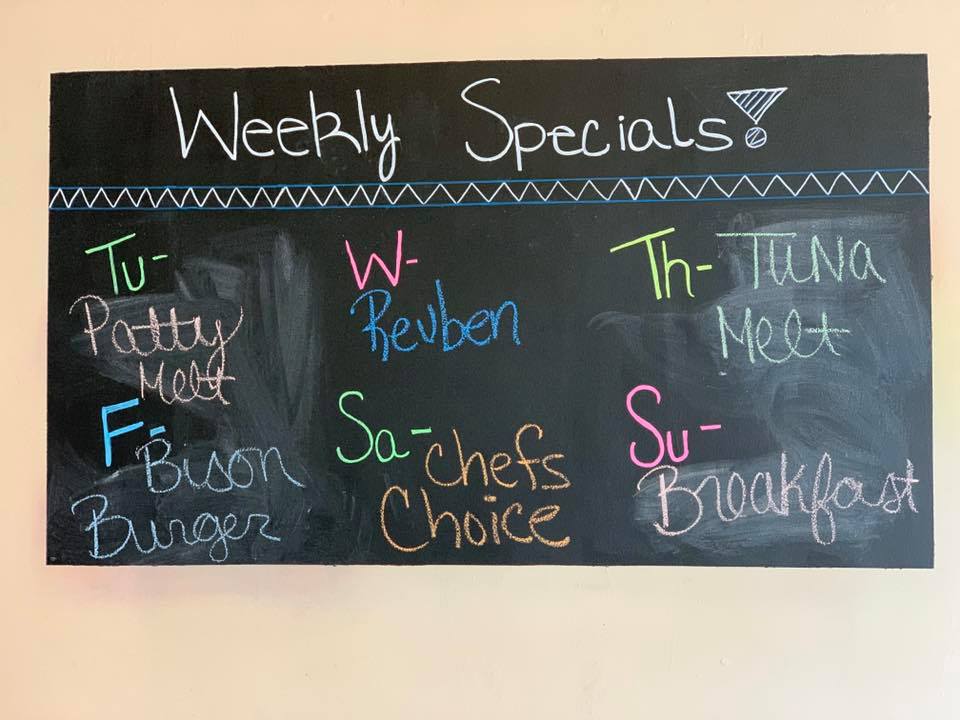 Weekly Specials!
Tu-
Patty
Melt
W-
Reuben
Th- TUNa
Melt
F- Bison
Burger
Sa- Chefs
Choice
Su-
Breakfast